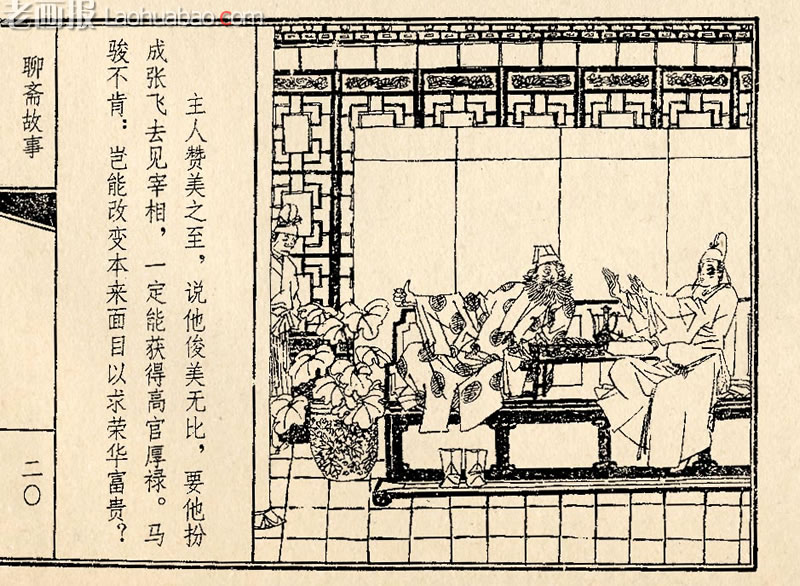 老画报 Laohuabao.com
聊斋故事
二〇
主人赞美之至，说他俊美无比，要他扮
成张飞去见宰相，一定能获得高官厚禄。马
骏不肯：岂能改变本来面目以求荣华富贵？